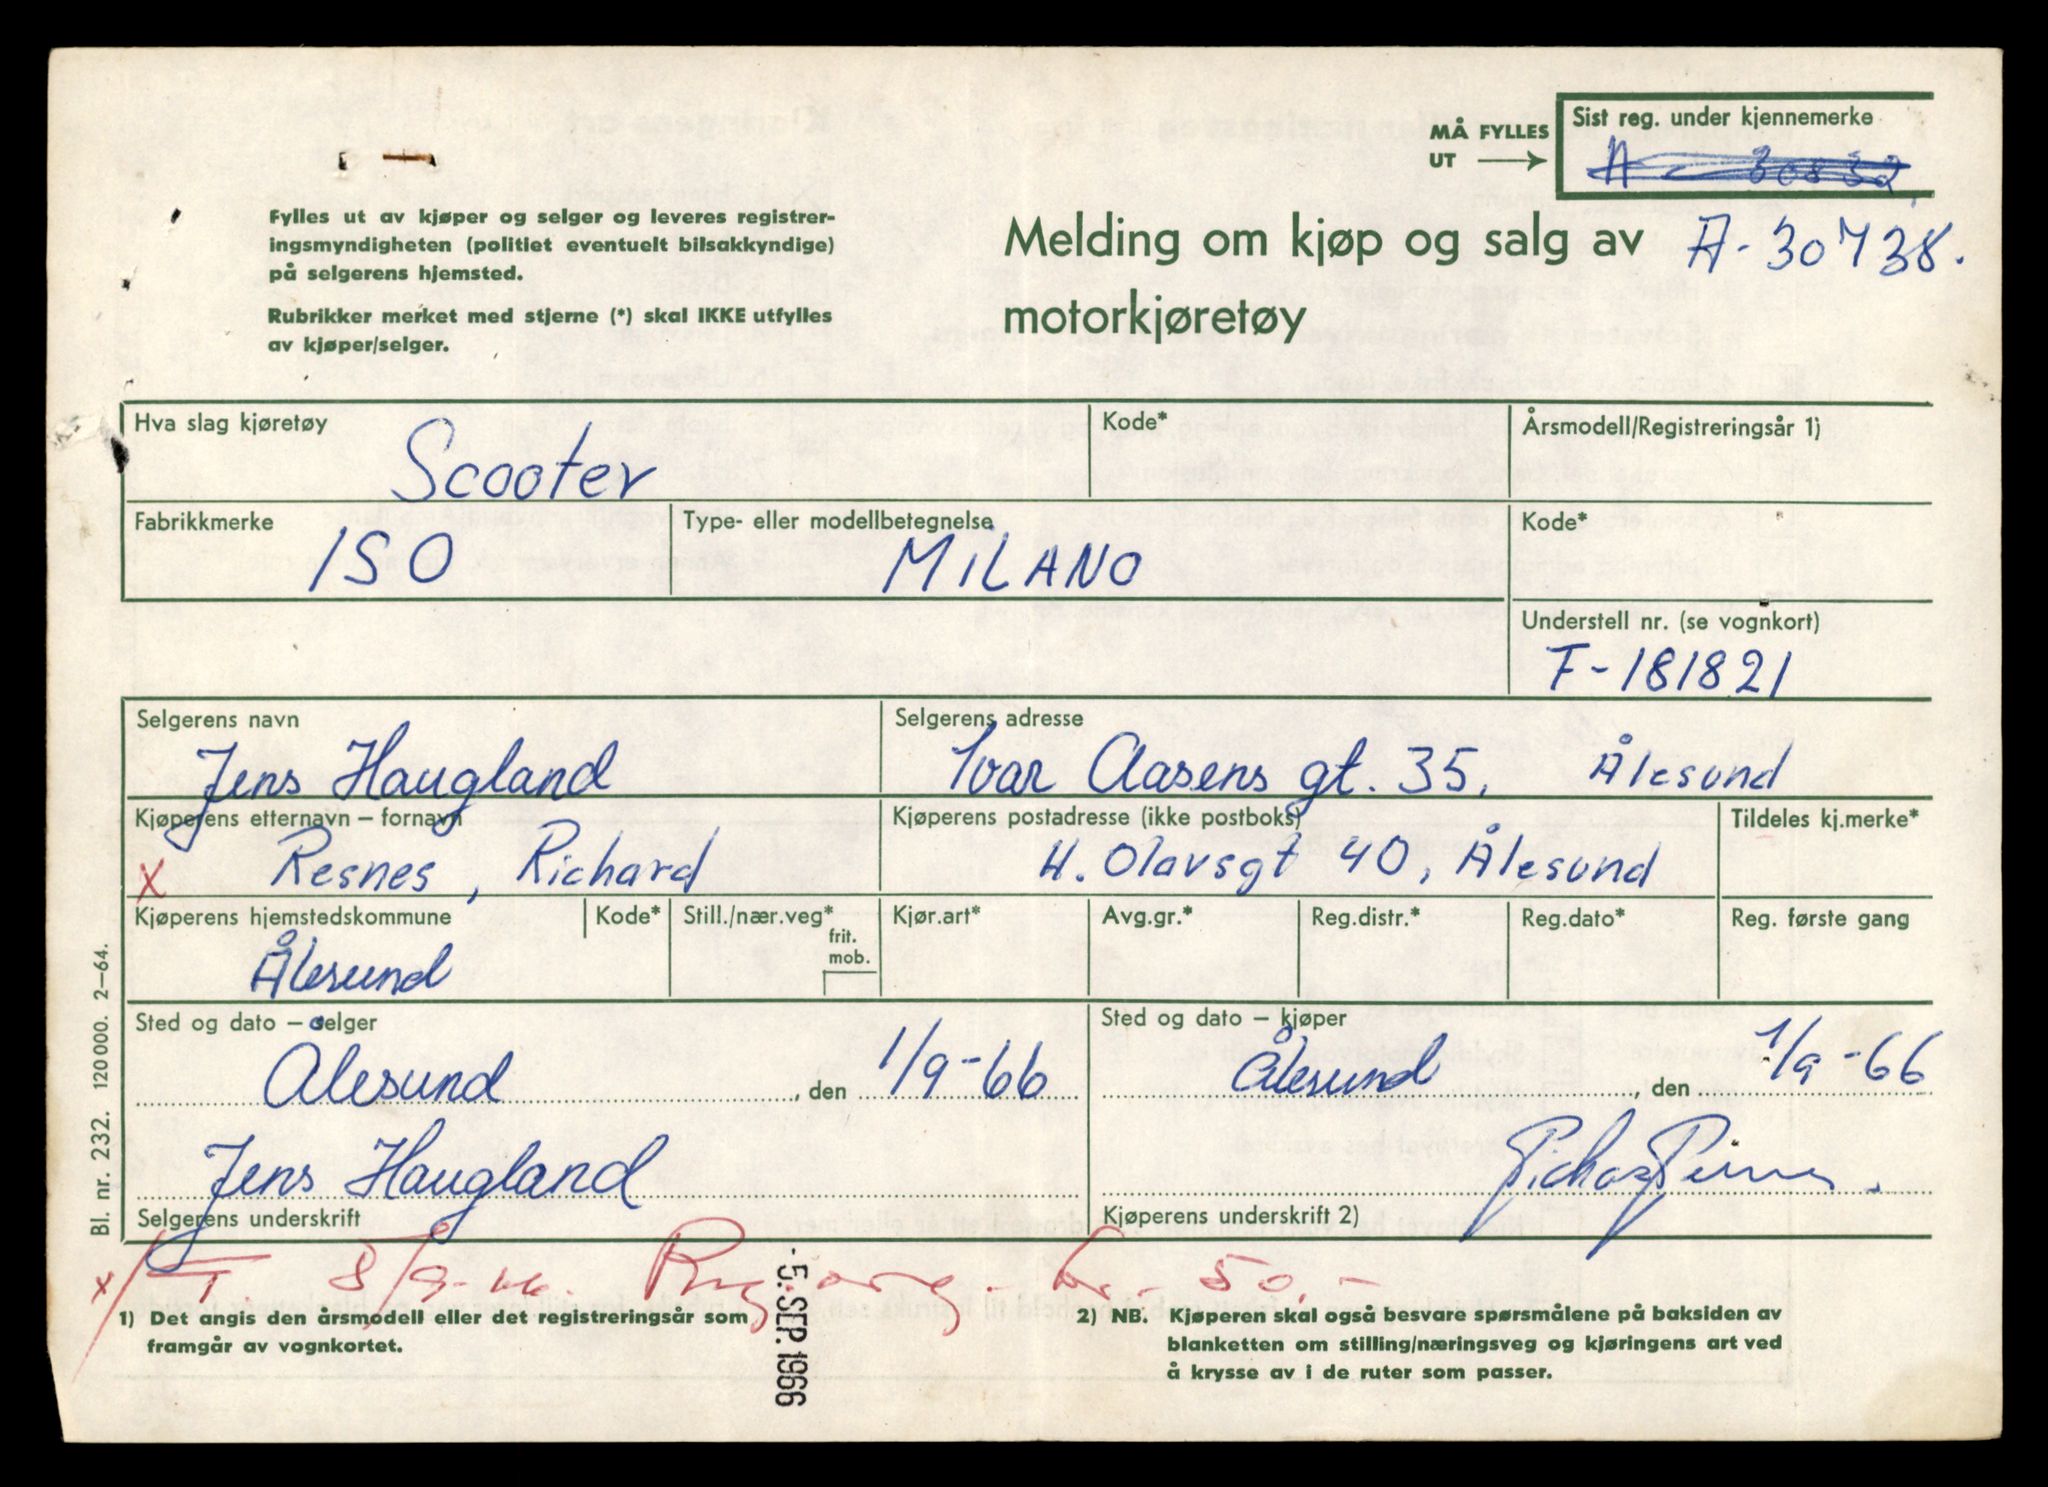 MÅ FYLLES UT
Sist reg. under kjennemerke
A-30738.
Fylles ut av kjøper og selger og leveres registrer-
ingsmyndigheten (politiet eventuelt bilsakkyndige)
på selgerens hjemsted.
Rubrikker merket med stjerne (*) skal IKKE utfylles
av kjøper/selger.
Melding om kjøp og salg av
motorkjøretøy
Hva slag kjøretøy
Scooter
Kode*
Årsmodell/Registreringsår 1)
Fabrikkmerke
ISO
Type- eller modellbetegnelse
MiLANO
Kode*
Understell nr. (se vognkort)
F-181821
Selgerens navn
Jens Haugland
Selgerens adresse
Ivar Aasens gt. 35, Ålesund
Kjøperens etternavn – fornavn
x Resnes, Richard
Kjøperens postadresse (ikke postboks)
H. Olavsgt 40, Ålesund
Tildeles kj.merke*
Kjøperens hjemstedskommune
Ålesund
Kode*
Still./nær.veg*
frit.
mob.
Kjør.art*
Avg.gr.*
Reg.distr.*
Reg.dato*
Reg. første gang
Sted og dato – selger
Ålesund, den 1/9-66
Sted og dato – kjøper
Ålesund, den 1/9-66
Jens Haugland
Selgerens underskrift
Kjøperens underskrift 2)
kr. 50,-
- 5. SEP. 1966
1) Det angis den årsmodell eller det registreringsår som
framgår av vognkortet.
2) NB. Kjøperen skal også besvare spørsmålene på baksiden av
blanketten om stilling/næringsveg og kjøringens art ved
å krysse av i de ruter som passer.
Bl. nr. 232. 120 000. 2–64.